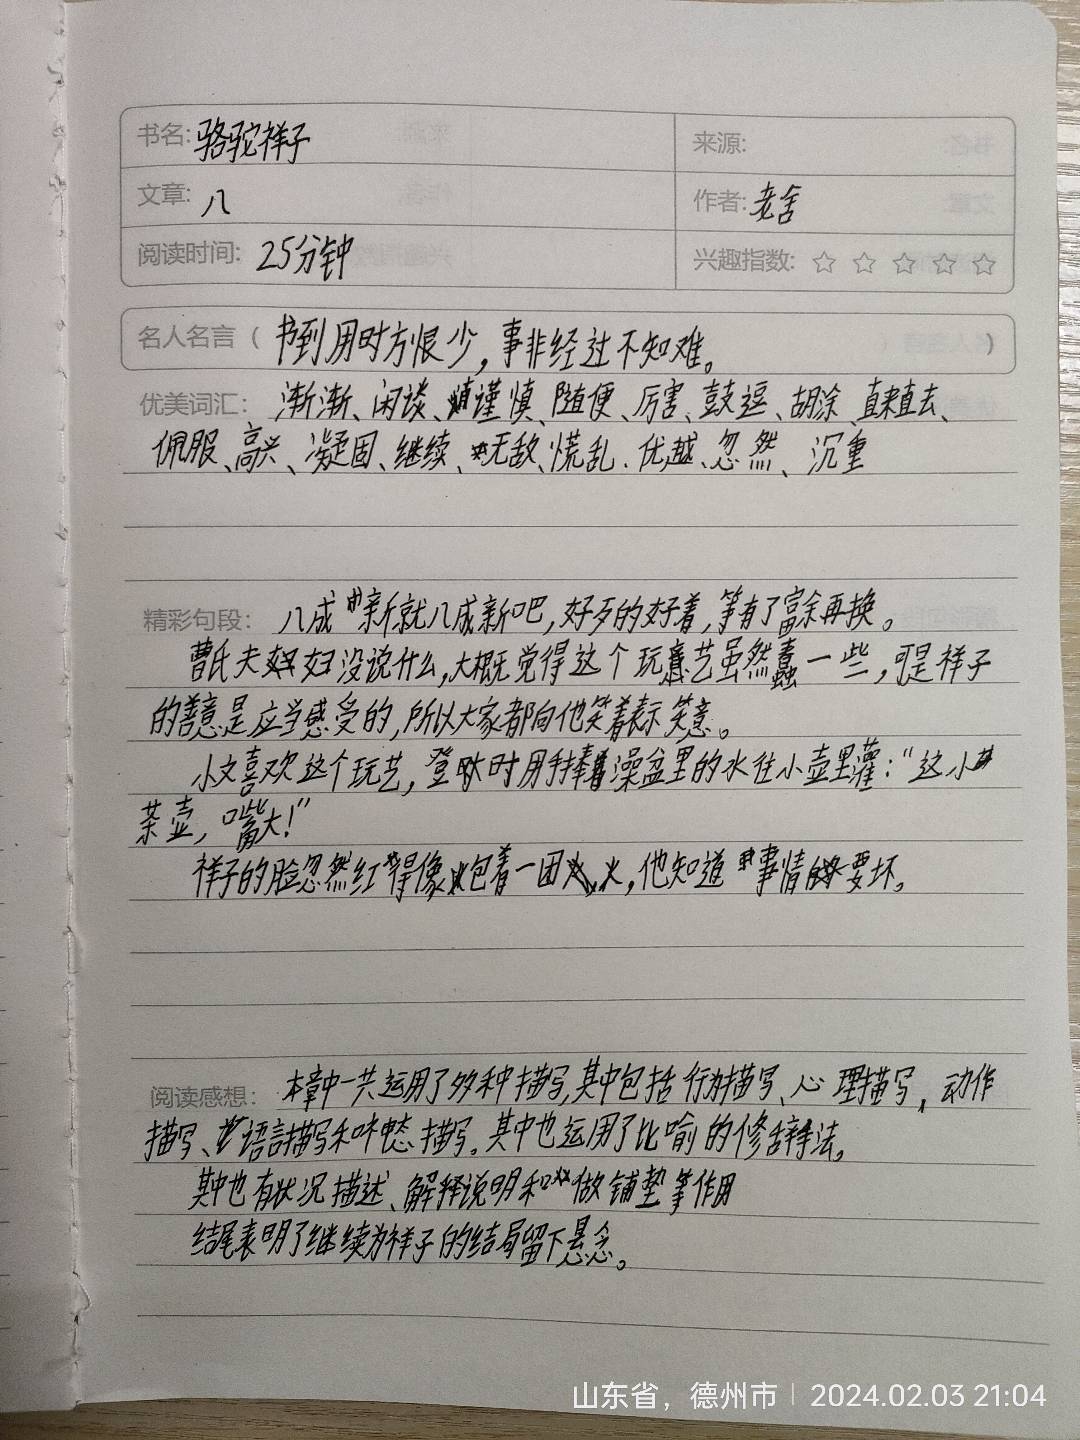 书名: 骆驼祥子
来源:
文章: 八
作者: 老舍
阅读时间: 25分钟
兴趣指数: ☆ ☆ ☆ ☆ ☆
名人名言（书到用时方恨少，事非经过不知难。）
优美词汇: 渐渐、闲谈、谨慎、随便、厉害、鼓逗、胡涂、直来直去、
佩服、高兴、凝固、继续、无敌、慌乱、优越、忽然、沉重
精彩句段: 八成新就八成新吧，好歹的好着，等有了富余再换。
曹氏夫妇没说什么，大概觉得这个玩意艺虽然蠢一些，可是祥子
的善意是应当感受的，所以大家都向他笑着表示笑意。
小文喜欢这个玩艺，登时用手捧着澡盆里的水往小壶里灌：“这小
茶壶，嘴大！”
祥子的脸忽然红得像包着一团火，他知道事情要坏。
阅读感想: 本章中一共运用了多种描写，其中包括行为描写、心理描写、动作
描写、语言描写和神态描写。其中也运用了比喻的修辞手法。
其中也有状况描述、解释说明和做铺垫等作用
结尾表明了继续为祥子的结局留下悬念。
山东省，德州市 | 2024.02.03 21:04